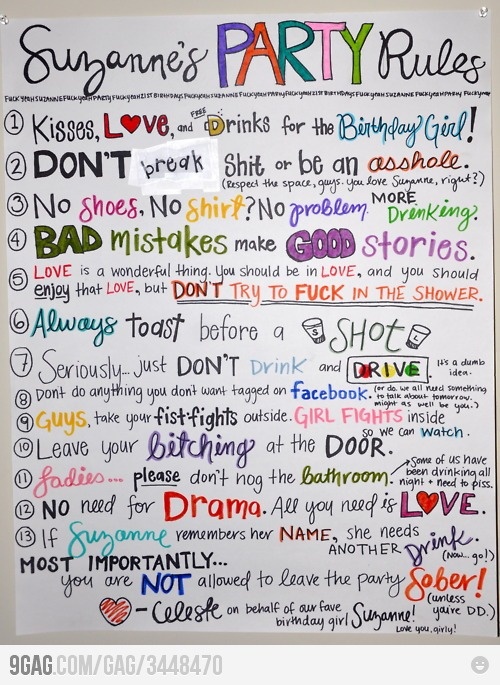 Suzanne's PARTY Rules
FUCK YEAH SUZANNE FUCK YEAH PARTY FUCK YEAH 21ST BIRTHDAYS FUCK YEAH SUZANNE FUCK YEAH PARTY FUCK YEAH 21ST BIRTHDAYS FUCK YEAH SUZANNE FUCK YEAH PARTY FUCK YEAH
① Kisses, L♥ve, and FREE Drinks for the Birthday Girl!
② DON'T break Shit or be an asshole.
(Respect the space, guys. you love Suzanne, right?)
③ No shoes, No shirt? No problem. MORE Drinking.
④ BAD mistakes make GOOD stories.
⑤ LOVE is a wonderful thing. You should be in LOVE, and you should
enjoy that LOVE, but DON'T TRY TO FUCK IN THE SHOWER.
⑥ Always toast before a SHOT
⑦ Seriously... just DON'T Drink and DRIVE. It's a dumb idea.
⑧ Don't do anything you don't want tagged on facebook. (or do. we all need something to talk about tomorrow. might as well be you.)
⑨ Guys, take your fist-fights outside. GIRL FIGHTS inside
so we can watch.
⑩ Leave your bitching at the DOOR.
⑪ ladies... please don't hog the bathroom. Some of us have been drinking all night + need to piss.
⑫ NO need for Drama. All you need is L♥VE.
⑬ If Suzanne remembers her NAME, she needs
ANOTHER Drink. (Now... go!)
MOST IMPORTANTLY...
you are NOT allowed to leave the party Sober!
(unless you're DD.)
♥ - Celeste on behalf of our fave birthday girl Suzanne!
Love you, girly!
9GAG.COM/GAG/3448470